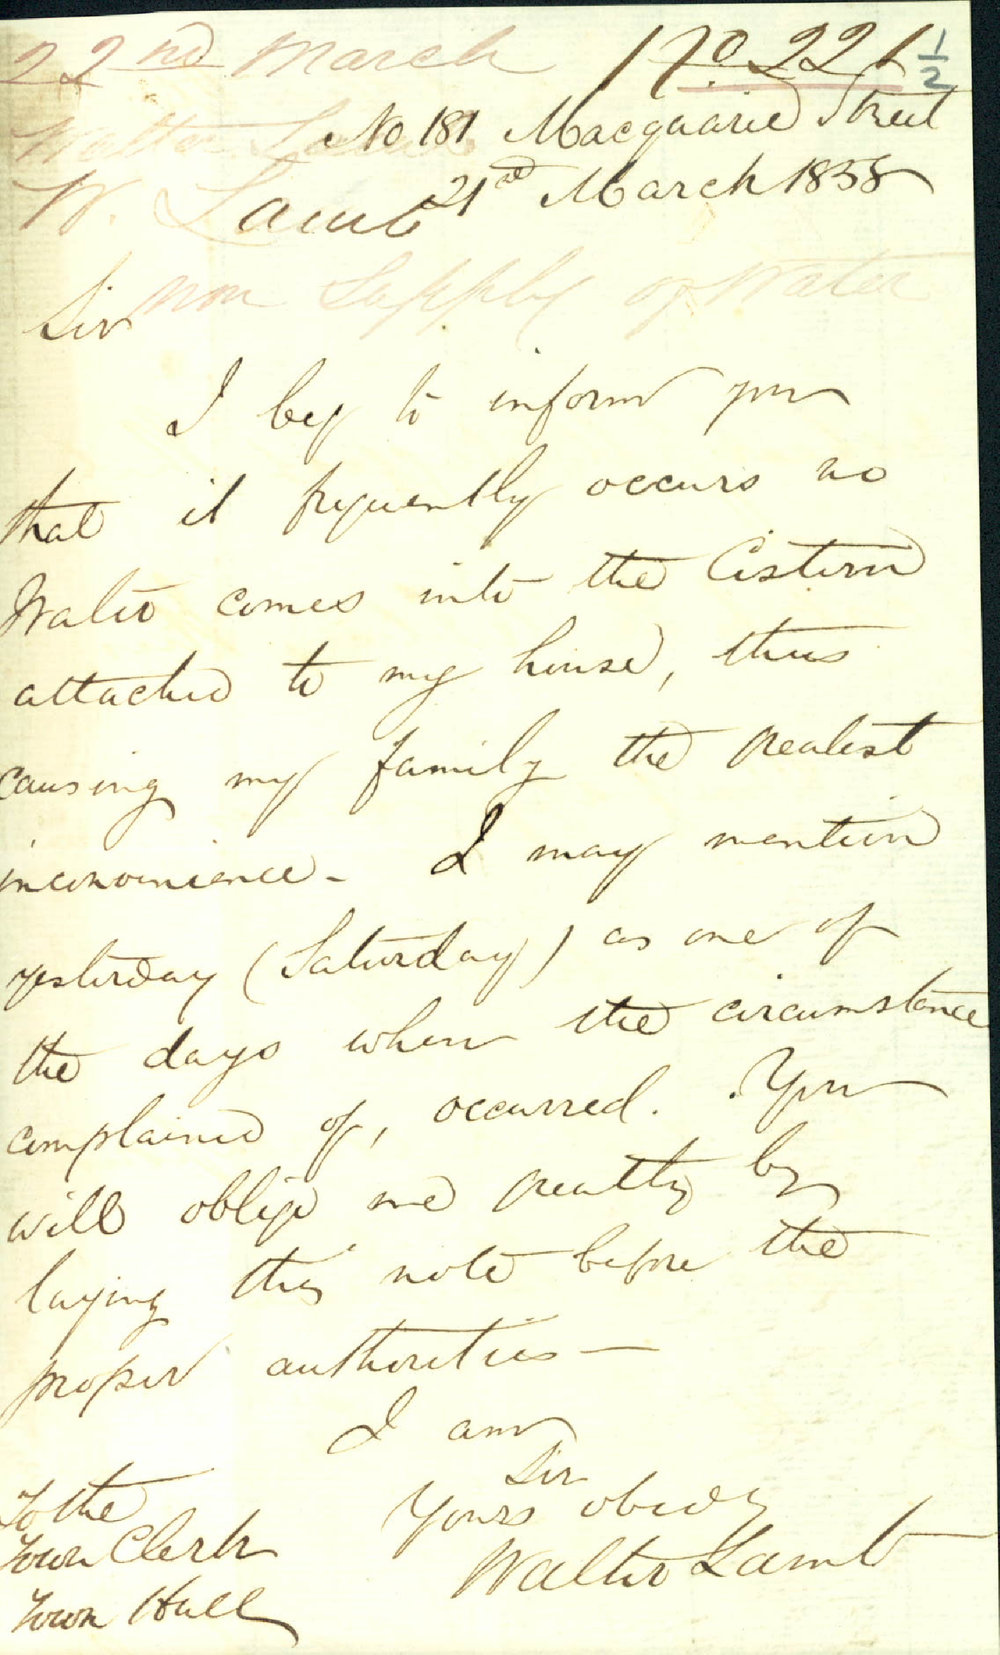 22nd March No 221 1/2
No 181 Macquarie Street
W. Lamb 21st March 1858
Non Supply of Water
Sir
I beg to inform you
that it frequently occurs no
Water comes into the Cistern
attached to my house, thus
causing my family the greatest
inconvenience - I may mention
yesterday (Saturday) as one of
the days when the circumstance
complained of, occurred. You
will oblige me greatly by
laying this note before the
proper authorities —
I am
Sir
Yours obedy
Walter Lamb
To the
Town Clerk
Town Hall